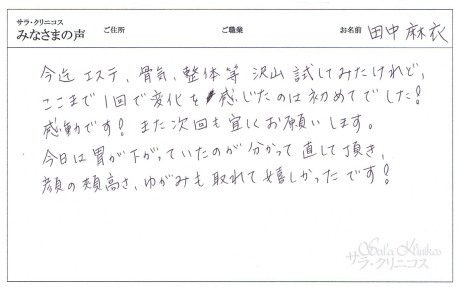 サラ・クリニコス
みなさまの声 ご住所 ご職業 お名前 田中麻衣
今迄 エステ、骨気、整体等 沢山 試してみたけれど、
ここまで 1回で変化を感じたのは初めてでした!
感動です! また次回も宜しくお願いします。
今日は胃が下がっていたのが分かって直して頂き、
顔の頬高さ、ゆがみも取れて嬉しかったです!
Sala Klinikos
サラ・クリニコス